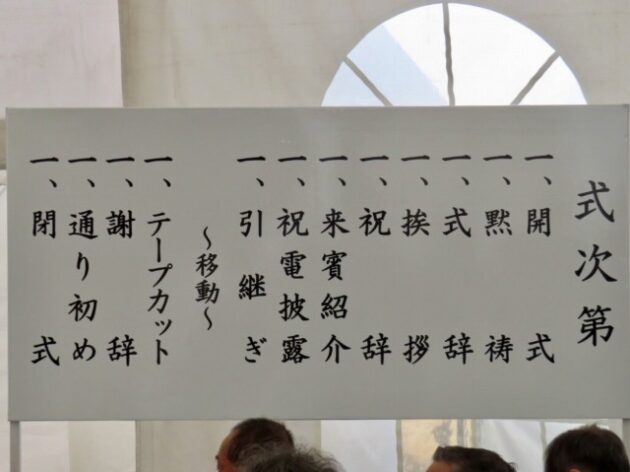 式次第
一、開式
一、黙祷
一、式辞
一、挨拶
一、祝辞
一、来賓紹介
一、祝電披露
一、引継ぎ
～移動～
一、テープカット
一、謝辞
一、通り初め
一、閉式